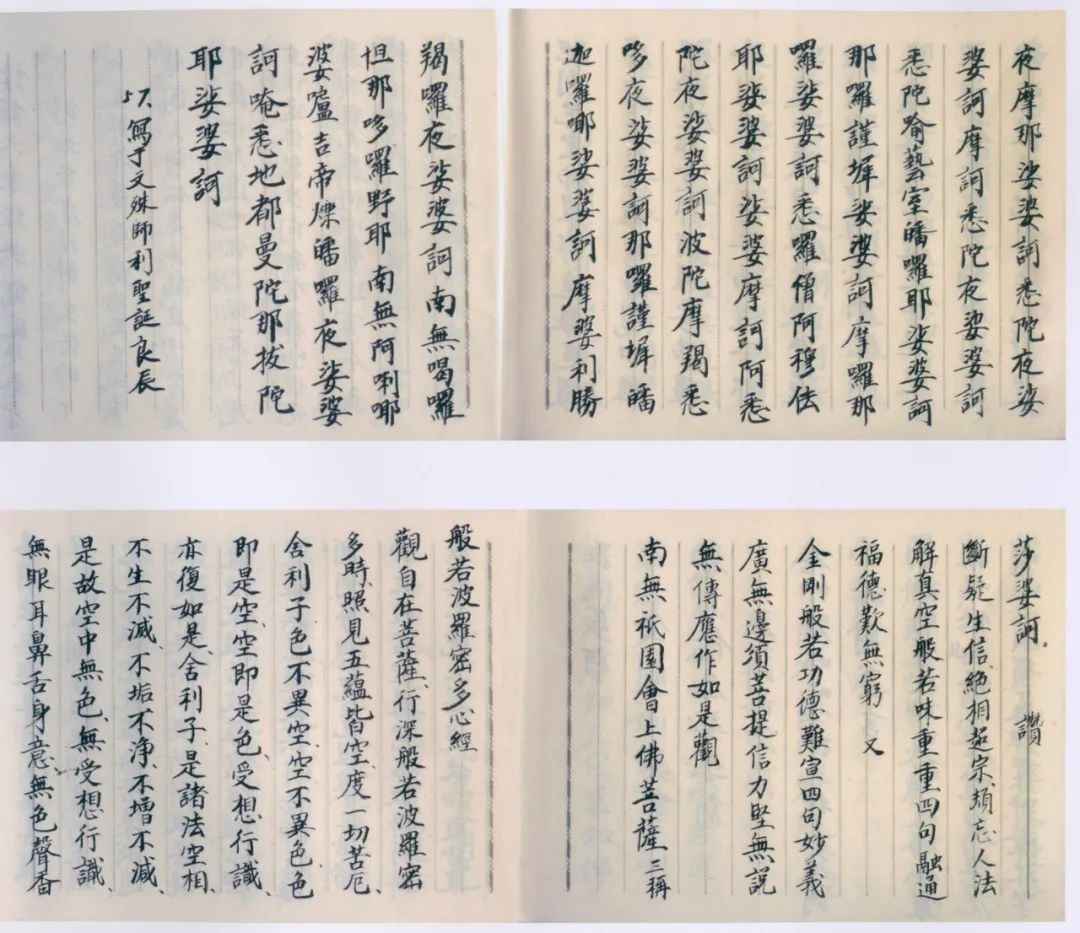 夜摩那娑婆訶悉陀夜娑
婆訶摩訶悉陀夜娑婆訶
悉陀喻藝室皤囉耶娑婆訶
那囉謹墀娑婆訶摩囉那
囉娑婆訶悉囉僧阿穆佉
耶娑婆訶娑婆摩訶阿悉
陀夜娑婆訶波陀摩羯悉
哆夜娑婆訶那囉謹墀皤
迦囉哪娑婆訶摩婆利勝
羯囉夜娑婆訶南無喝囉
怛那哆囉野耶南無阿唎哪
婆嚧吉帝爍皤囉夜娑婆
訶唵悉地都曼陀那拔陀
耶娑婆訶
57.寫于文殊師利聖誕良辰
莎婆訶。 讚
斷疑生信絕相超宗頓忘人法
解真空般若味重重四句融通
福德歎無窮 又
金剛般若功德難宣四句妙義
廣無邊須菩提信力堅無說
無傳應作如是觀
南無祇園會上佛菩薩三稱
般若波羅密多心經
觀自在菩薩、行深般若波羅密
多時、照見五蘊皆空、度一切苦厄、
舍利子色不異空、空不異色、色
即是空、空即是色、受想、行識、
亦復如是、舍利子是諸法空相、
不生不滅、不垢不淨、不增不減、
是故空中無色、無受想、行識、
無眼耳鼻舌身意、無色聲香